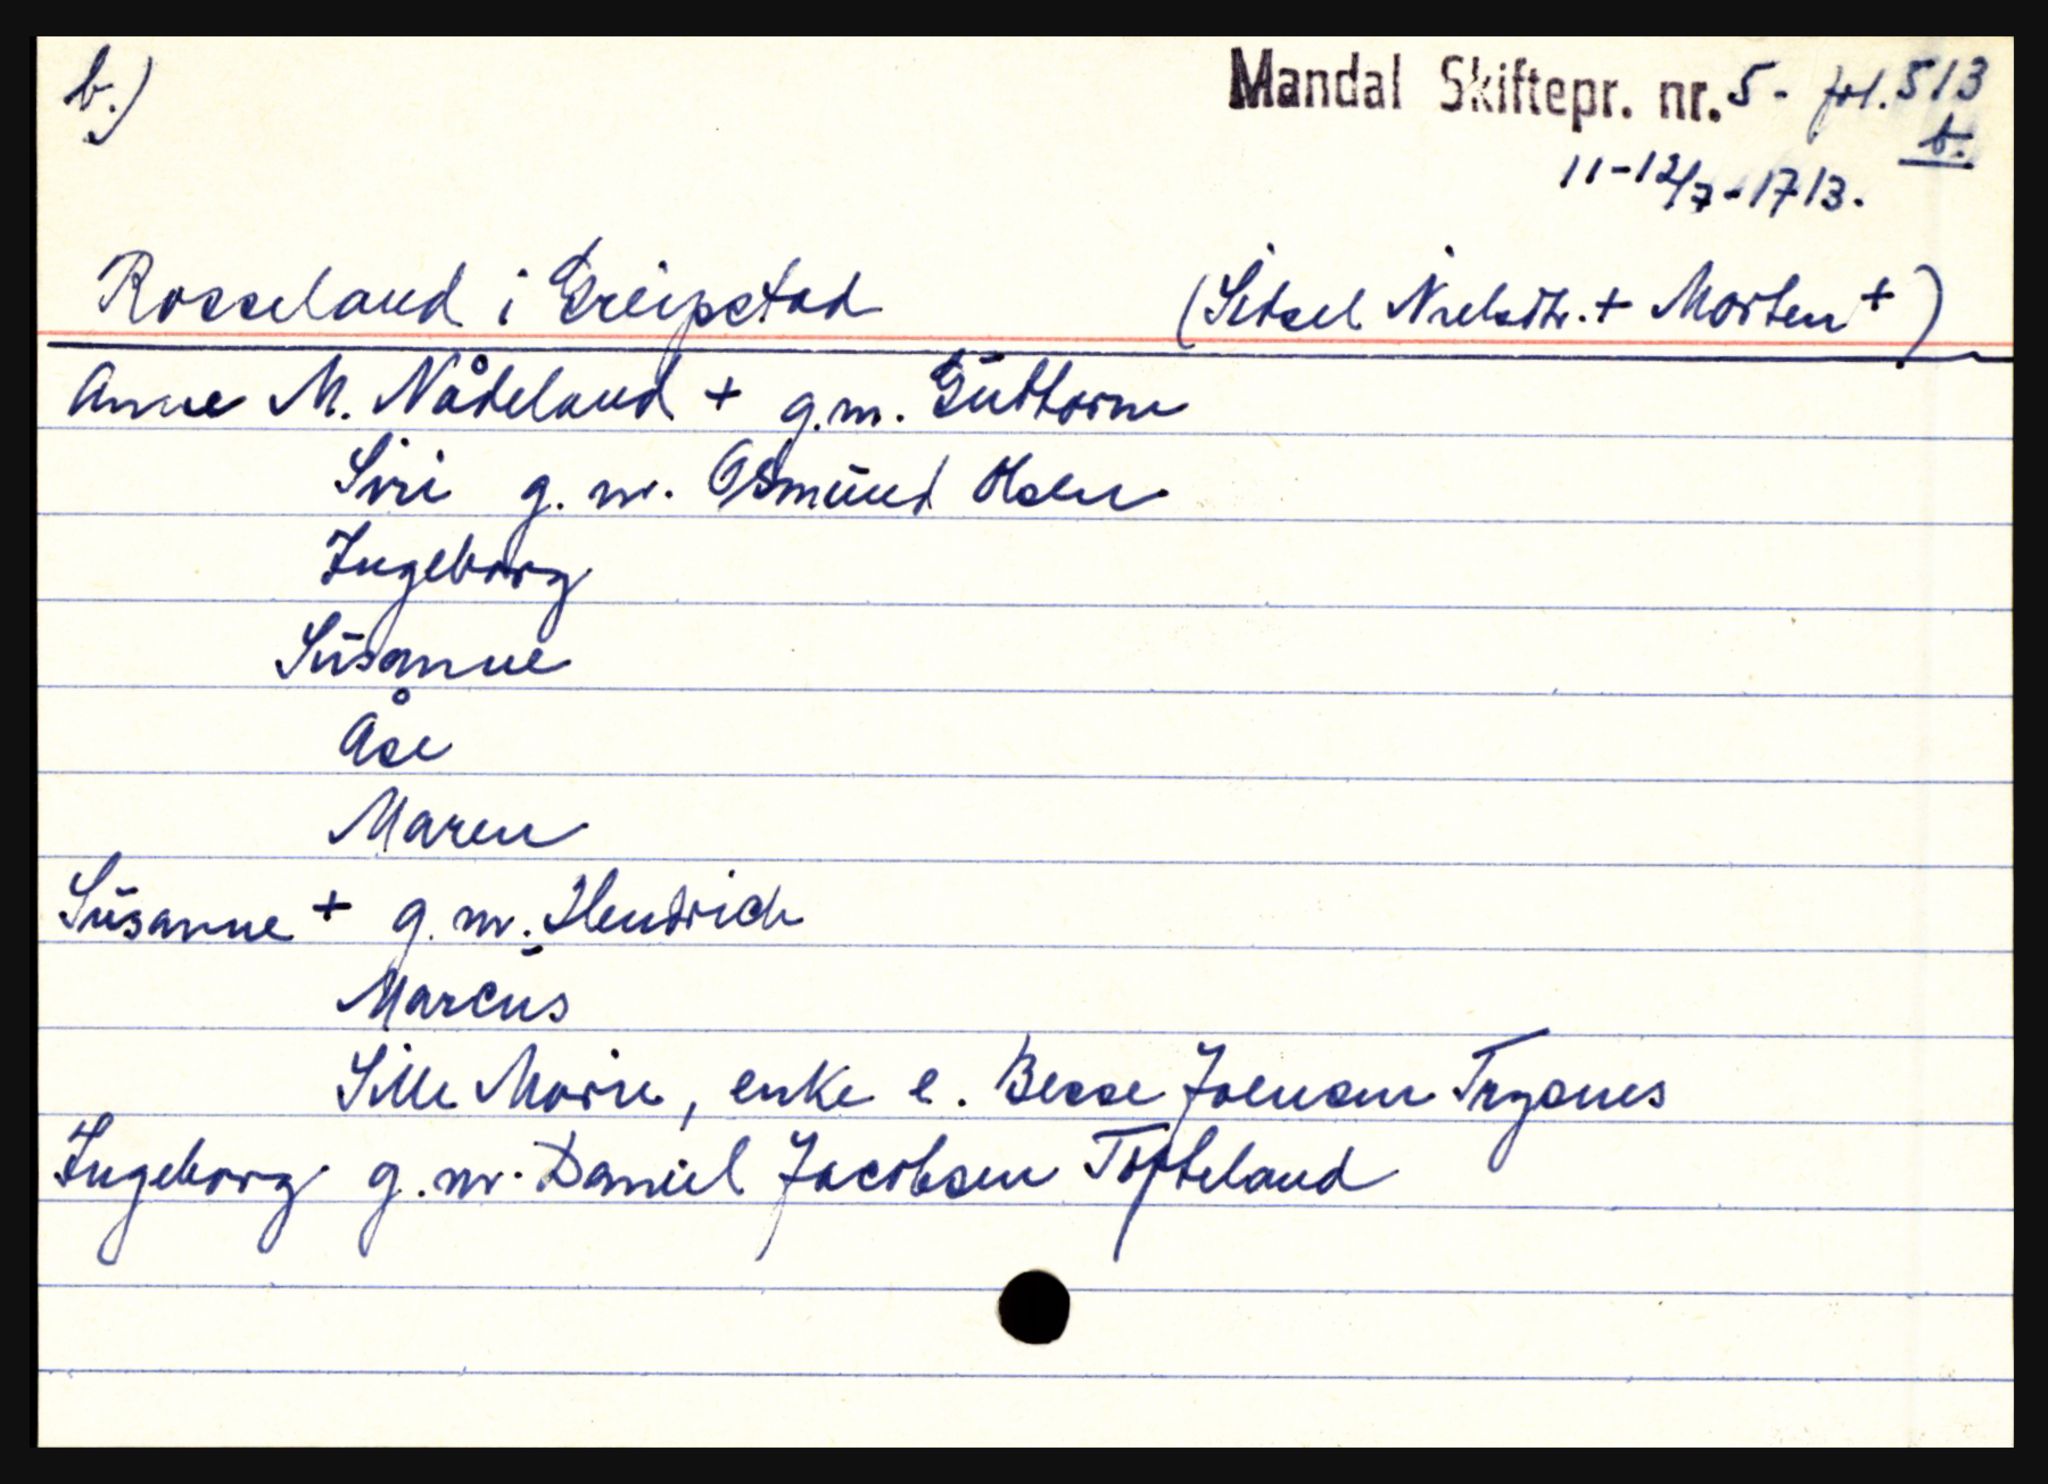 b.)
Mandal Skiftepr. nr. 5- fol. 513
b.
11-12/7-1713.
Rosseland i Greipstad (Sidsel Nielsdtr. + Morten +)
Anne M. Nådeland + g.m. Guttorm
Siri g.m. Osmund Olsen
Ingeborg
Susanne
Åse
Maren
Susanne + g.m. Hendrich
Marcus
Sille Marie, enke e. Besse Joensen Trysnes
Ingeborg g.m. Daniel Jacobsen Tofteland